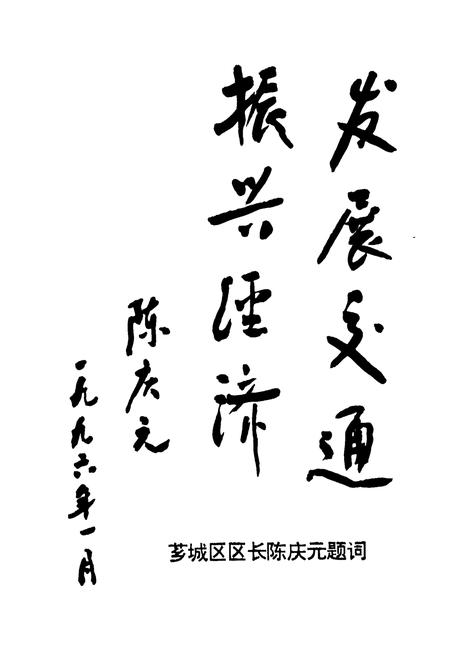 发展交通
振兴经济
陈庆元
一九九六年一月
芗城区区长陈庆元题词